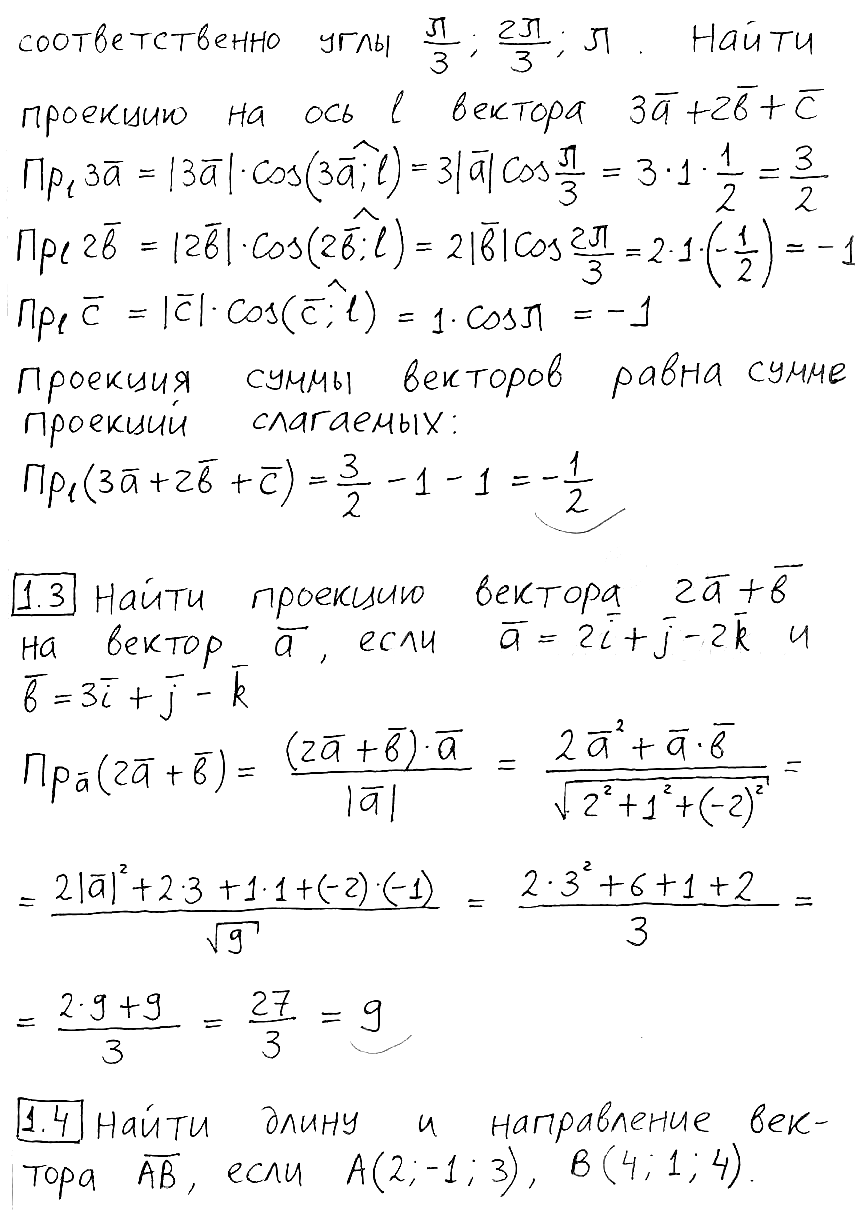 соответственно углы π/3; 2π/3; π. Найти
проекцию на ось l вектора 3a̅+2b̅+c̅
Пр_l 3a̅ = |3a̅|·cos(3a̅;^l) = 3|a̅|cos π/3 = 3·1·1/2 = 3/2
Пр_l 2b̅ = |2b̅|·cos(2b̅;^l) = 2|b̅|cos 2π/3 = 2·1·(-1/2) = -1
Пр_l c̅ = |c̅|·cos(c̅;^l) = 1·cosπ = -1
Проекция суммы векторов равна сумме
проекций слагаемых:
Пр_l(3a̅+2b̅+c̅) = 3/2 - 1 - 1 = -1/2
1.3 Найти проекцию вектора 2a̅+b̅
на вектор a̅, если a̅ = 2i̅+j̅-2k̅ и
b̅ = 3i̅+j̅-k̅
Пр_a̅(2a̅+b̅) = (2a̅+b̅)·a̅ / |a̅| = (2a̅²+a̅·b̅) / √(2²+1²+(-2)²) =
= (2|a̅|²+2·3+1·1+(-2)·(-1)) / √9 = (2·3²+6+1+2) / 3 =
= (2·9+9) / 3 = 27/3 = 9
1.4 Найти длину и направление век-
тора A̅B̅, если A(2;-1;3), B(4;1;4).